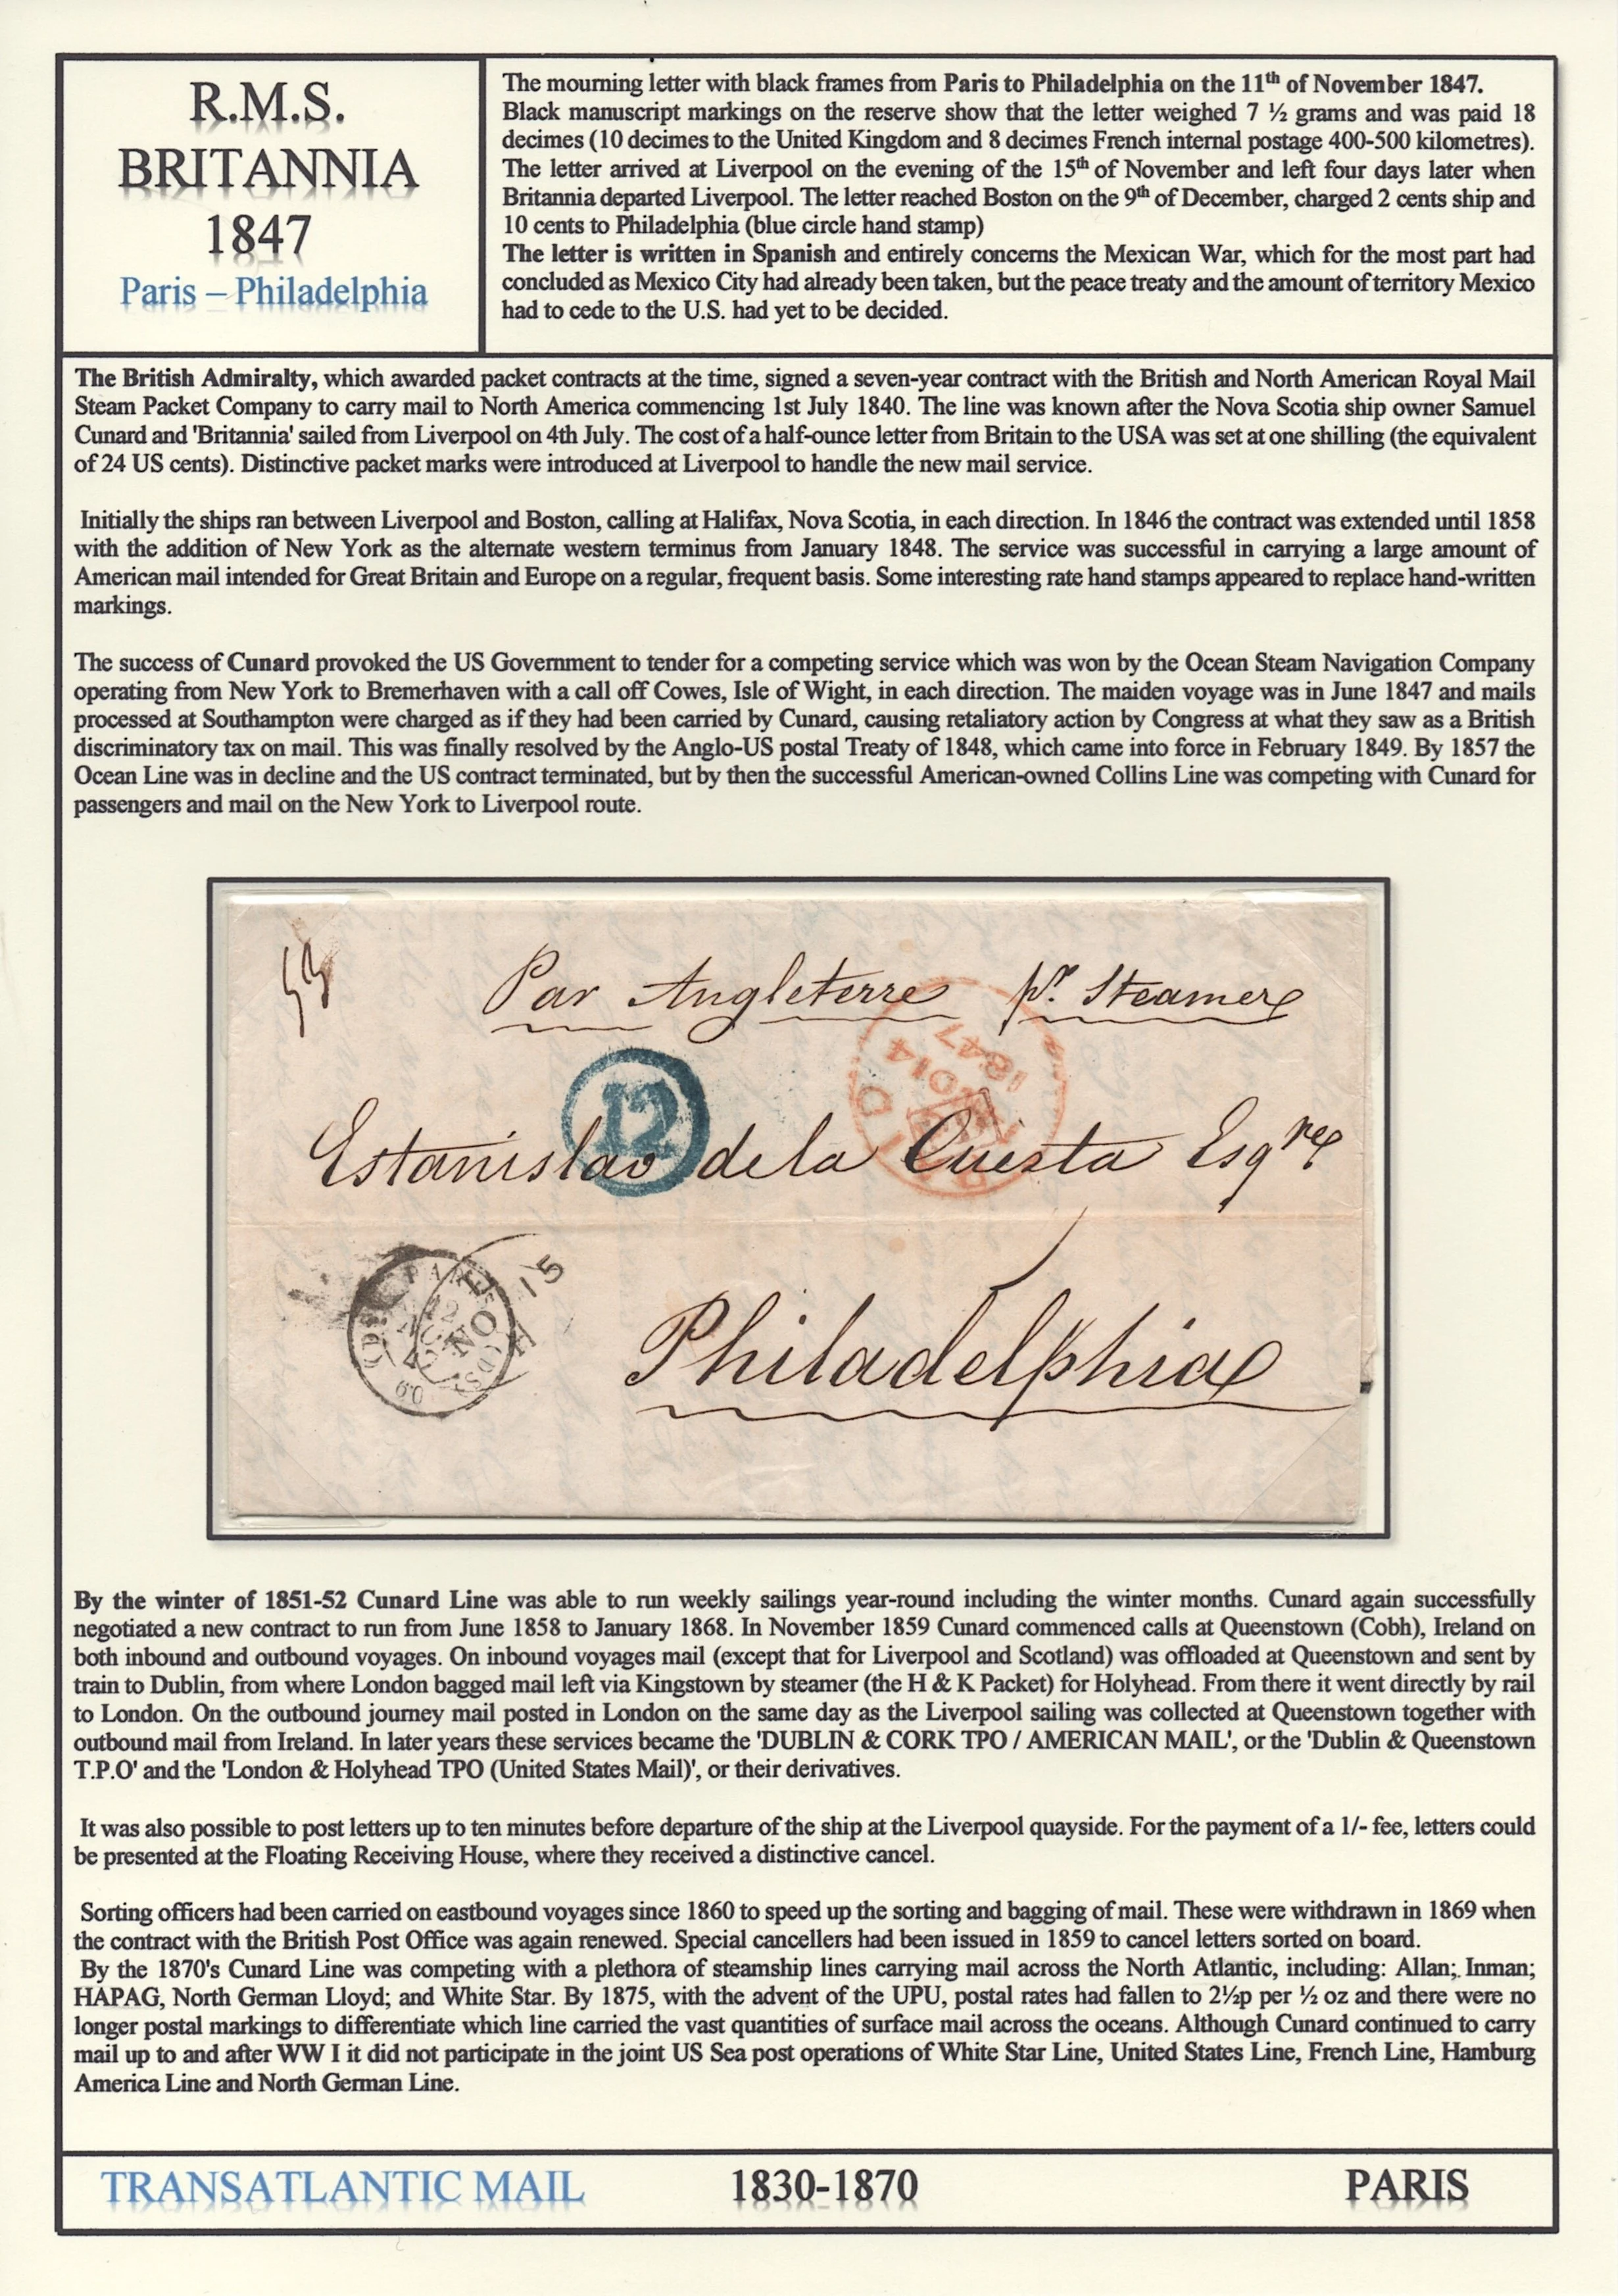 R.M.S.
BRITANNIA
1847
Paris – Philadelphia
The mourning letter with black frames from Paris to Philadelphia on the 11th of November 1847.
Black manuscript markings on the reserve show that the letter weighed 7 ½ grams and was paid 18
decimes (10 decimes to the United Kingdom and 8 decimes French internal postage 400-500 kilometres).
The letter arrived at Liverpool on the evening of the 15th of November and left four days later when
Britannia departed Liverpool. The letter reached Boston on the 9th of December, charged 2 cents ship and
10 cents to Philadelphia (blue circle hand stamp)
The letter is written in Spanish and entirely concerns the Mexican War, which for the most part had
concluded as Mexico City had already been taken, but the peace treaty and the amount of territory Mexico
had to cede to the U.S. had yet to be decided.
The British Admiralty, which awarded packet contracts at the time, signed a seven-year contract with the British and North American Royal Mail
Steam Packet Company to carry mail to North America commencing 1st July 1840. The line was known after the Nova Scotia ship owner Samuel
Cunard and 'Britannia' sailed from Liverpool on 4th July. The cost of a half-ounce letter from Britain to the USA was set at one shilling (the equivalent
of 24 US cents). Distinctive packet marks were introduced at Liverpool to handle the new mail service.
Initially the ships ran between Liverpool and Boston, calling at Halifax, Nova Scotia, in each direction. In 1846 the contract was extended until 1858
with the addition of New York as the alternate western terminus from January 1848. The service was successful in carrying a large amount of
American mail intended for Great Britain and Europe on a regular, frequent basis. Some interesting rate hand stamps appeared to replace hand-written
markings.
The success of Cunard provoked the US Government to tender for a competing service which was won by the Ocean Steam Navigation Company
operating from New York to Bremerhaven with a call off Cowes, Isle of Wight, in each direction. The maiden voyage was in June 1847 and mails
processed at Southampton were charged as if they had been carried by Cunard, causing retaliatory action by Congress at what they saw as a British
discriminatory tax on mail. This was finally resolved by the Anglo-US postal Treaty of 1848, which came into force in February 1849. By 1857 the
Ocean Line was in decline and the US contract terminated, but by then the successful American-owned Collins Line was competing with Cunard for
passengers and mail on the New York to Liverpool route.
Par Angleterre pr. Steamer
1847
12
Estanislao de la Cuesta Esqre
15
NO
60
Philadelphia
By the winter of 1851-52 Cunard Line was able to run weekly sailings year-round including the winter months. Cunard again successfully
negotiated a new contract to run from June 1858 to January 1868. In November 1859 Cunard commenced calls at Queenstown (Cobh), Ireland on
both inbound and outbound voyages. On inbound voyages mail (except that for Liverpool and Scotland) was offloaded at Queenstown and sent by
train to Dublin, from where London bagged mail left via Kingstown by steamer (the H & K Packet) for Holyhead. From there it went directly by rail
to London. On the outbound journey mail posted in London on the same day as the Liverpool sailing was collected at Queenstown together with
outbound mail from Ireland. In later years these services became the 'DUBLIN & CORK TPO / AMERICAN MAIL', or the 'Dublin & Queenstown
T.P.O' and the 'London & Holyhead TPO (United States Mail)', or their derivatives.
It was also possible to post letters up to ten minutes before departure of the ship at the Liverpool quayside. For the payment of a 1/- fee, letters could
be presented at the Floating Receiving House, where they received a distinctive cancel.
Sorting officers had been carried on eastbound voyages since 1860 to speed up the sorting and bagging of mail. These were withdrawn in 1869 when
the contract with the British Post Office was again renewed. Special cancellers had been issued in 1859 to cancel letters sorted on board.
By the 1870's Cunard Line was competing with a plethora of steamship lines carrying mail across the North Atlantic, including: Allan; Inman;
HAPAG, North German Lloyd; and White Star. By 1875, with the advent of the UPU, postal rates had fallen to 2½p per ½ oz and there were no
longer postal markings to differentiate which line carried the vast quantities of surface mail across the oceans. Although Cunard continued to carry
mail up to and after WW I it did not participate in the joint US Sea post operations of White Star Line, United States Line, French Line, Hamburg
America Line and North German Line.
TRANSATLANTIC MAIL 1830-1870 PARIS